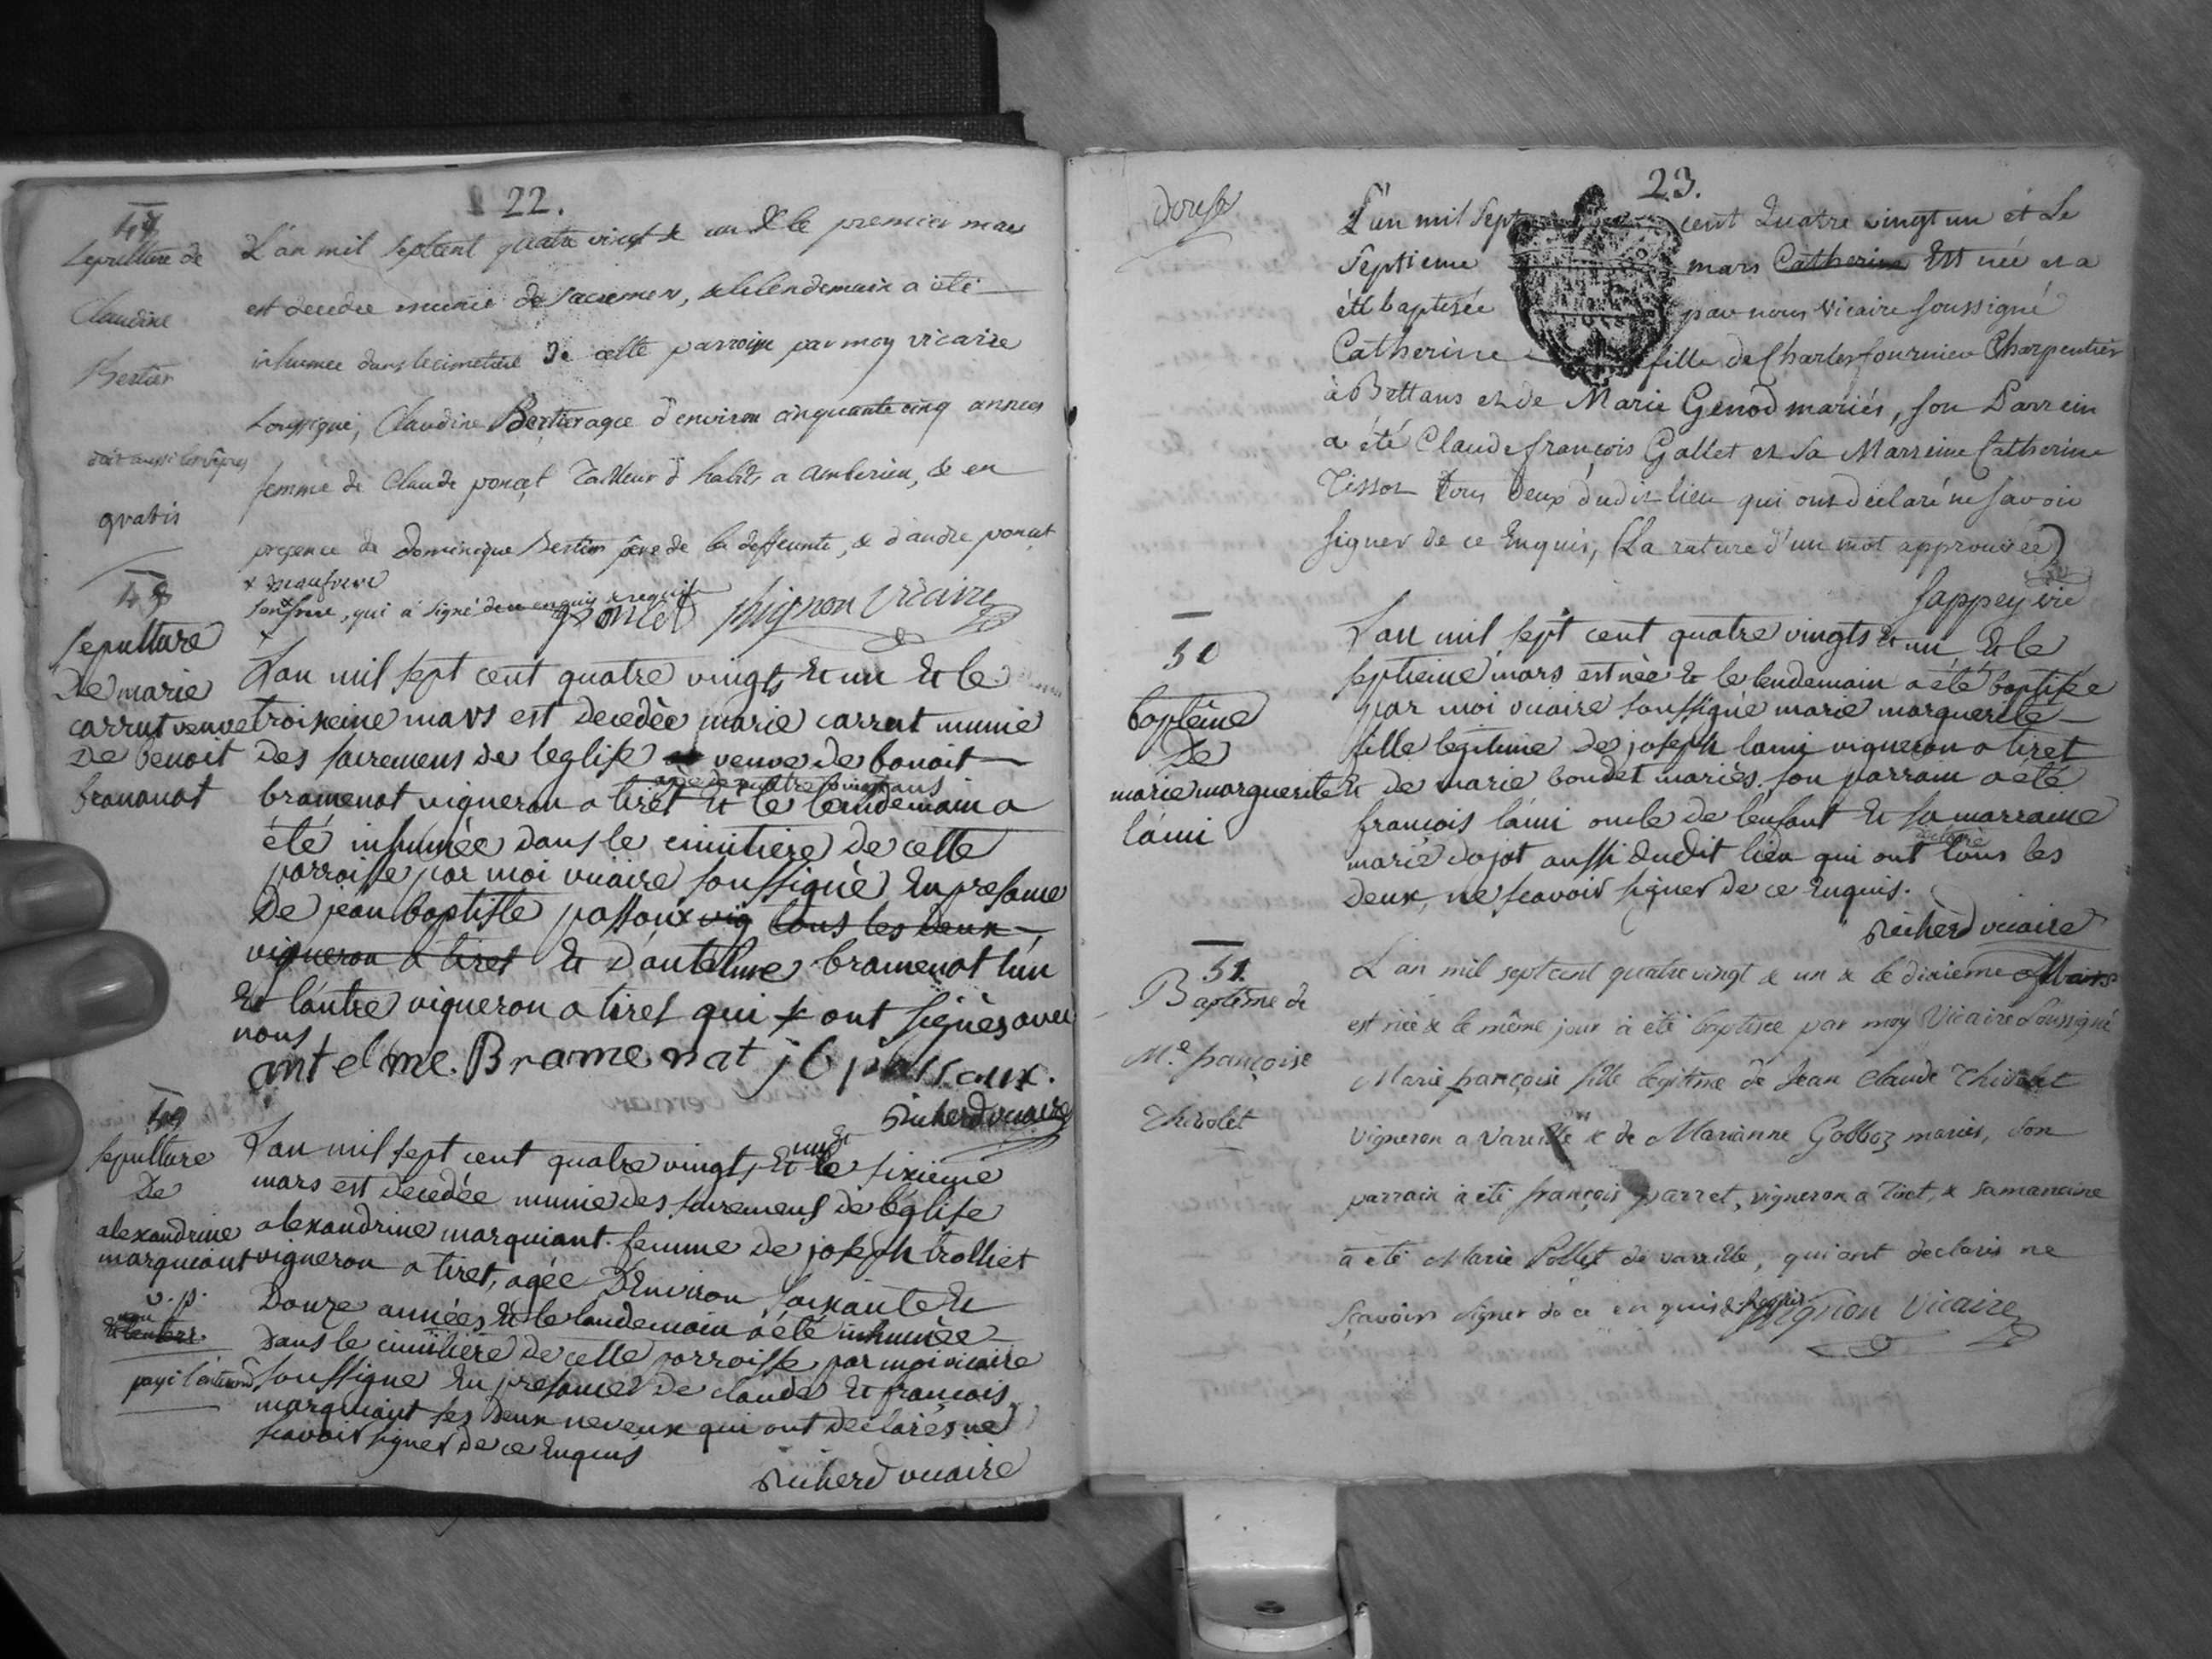 22.
47
Sepulture de
Claudine
Bertier
doit aussi les vêpres
gratis
L'an mil septcent quatre vingt & un & le premier mars
est decedée munie de sacremens, & le lendemain a été
inhumée dans le cimetiere de cette parroisse par moy vicaire
soussigné, Claudine Bertier agée d'environ cinquante cinq années
femme de Claude ponçet Tailleur d'habits a amberieu, & en
presence de Dominique Bertier père de la deffeunte, & d'andre ponçet
x beaufrere
son frere, qui a signé de ce enquis & requis
poncet Mignon Vicaire
48
Sepulture
De marie
carrut veuve
De benoit
bramanat
Lan mil sept cent quatre vingts et un et le
troixieme mars est decedèe marie carrut munie
Des sacremens de leglise veuve de bonoit
agée de quatre vingt ans
bramenat vigneron a tiret et le lendemain a
été inhumèe dans le cimitiere de cette
parroisse par moi vicaire soussignè En presance
De jean baptiste passoux vig tous les deux
vigneron a tiret et d'antelme bramenat l'un
Et l'autre vigneron a tiret qui ont signès avec
nous
antelme. Bramenat jb passoux.
Richerd vicaire
49
sepulture
De
alexandrine
marquiant
v. p.
payé l'enterre
Lan mil sept cent quatre vingts et un & le sixieme
mars est decedée munie des sacremens de l'église
alexandrine marquiant femme de joseph trolliet
vigneron a tiret, agée D'Environ soixante et
Douze années et le landemain a été inhumèe
Dans le cimitiere de cette parroisse par moi vicaire
soussigne En presance de claude et francois
marquiant ses deux neveux qui ont declarés ne
scavoir signer de ce Enquis
Richerd vicaire
23.
douse
L'an mil Sept cent Quatre vingt un et Le
Septieme mars Catherine Est née et a
été baptisée par nous Vicaire soussigné
Catherine fille de Charles fournier Charpentier
à Bettans et de Marie Genod mariés, son Parrein
a été Claude françois Gallet et sa Marreine Catherine
Tissot Tous deux dudit lieu qui ont declaré ne savoir
signer de ce Enquis, (La rature d'un mot approuvée)
Sappey vic
50
baptême
De
marie marguerite
lámi
Lan mil sept cent quatre vingts et un et le
septieme mars est née et le lendemain a été baptisée
par moi vicaire soussigné marie marguerite
fille legitime de joseph lami vigneron a tiret
et de marie boudet mariès. son parrain a été
françois lámi oncle de l'enfant et sa marraine
declaré
marie dojat aussi dudit lieu qui ont tous les
Deux, ne scavoir signer de ce Enquis.
Richerd vicaire
51.
Baptême de
Me. françoise
Thivolet
L'an mil septcent quatre vingt & un & le dixieme Mars
est née & le même jour a été baptisée par moy Vicaire Soussigné
Marie françoise fille legitime de Jean Claude Thivolet
vigneron a Vareille & de Marianne Gobboz mariés, Son
parrain a été françois parret, vigneron a Tiret, & sa maraine
a été Marie Pollet de vareille, qui ont declarés ne
sçavoir signer de ce enquis & requis Mignon Vicaire